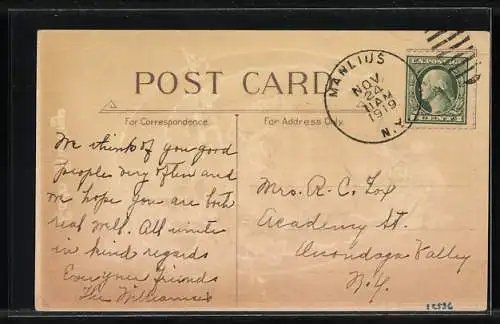 POST CARD
MANLIUS
NOV
24
11AM
1919
N.Y.
U.S. POSTAGE
For Correspondence
For Address Only
We think of you good
people very often and
we hope you are both
real well. All unite
in kind regards
Your friends
The Williamses
Mrs. R. C. Fox
Academy St.
Onondaga Valley
N.Y.
12536